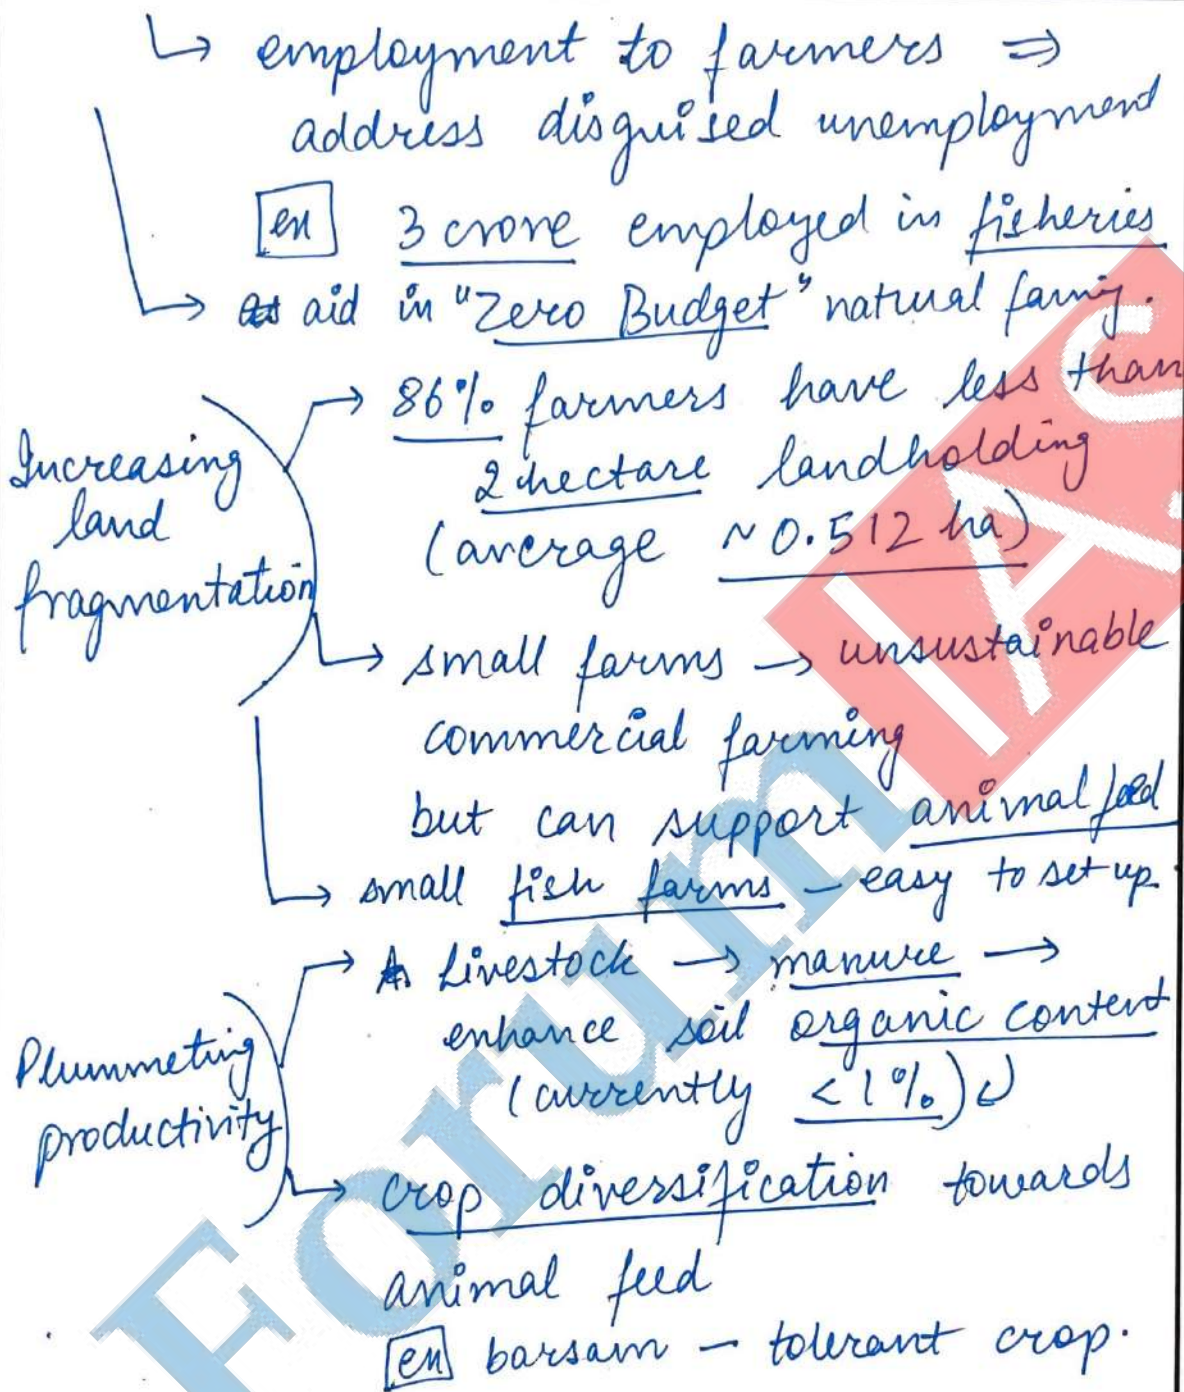 ↳ employment to farmers ⇒
address disguised unemployment
ex 3 crore employed in fisheries
→ aid in "Zero Budget" natural faming.
Increasing land fragmentation
→ 86% farmers have less than
2 hectare landholding
(average ~0.512 ha)
→ small farms → unsustainable
commercial farming
but can support animal feed
→ small fish farms – easy to set up
Plummeting productivity
→ Livestock → manure →
enhance soil organic content
(currently <1%)
→ crop diversification towards
animal feed
ex barsam – tolerant crop.
Forum IAS